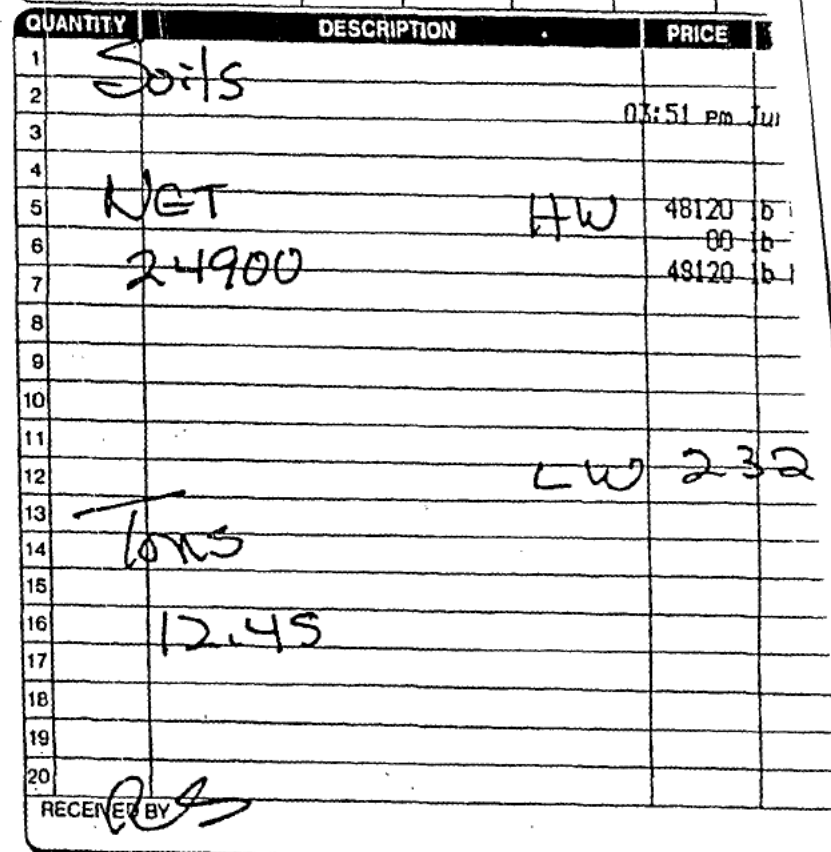 QUANTITY DESCRIPTION PRICE
1 Soils
2 03:51 pm Jun
3
4
5 NET HW 48120 lb
6 24900 00 lb
7 48120 lb
8
9
10
11
12 LW 232
13
14 Tons
15
16 12.45
17
18
19
20
RECEIVED BY